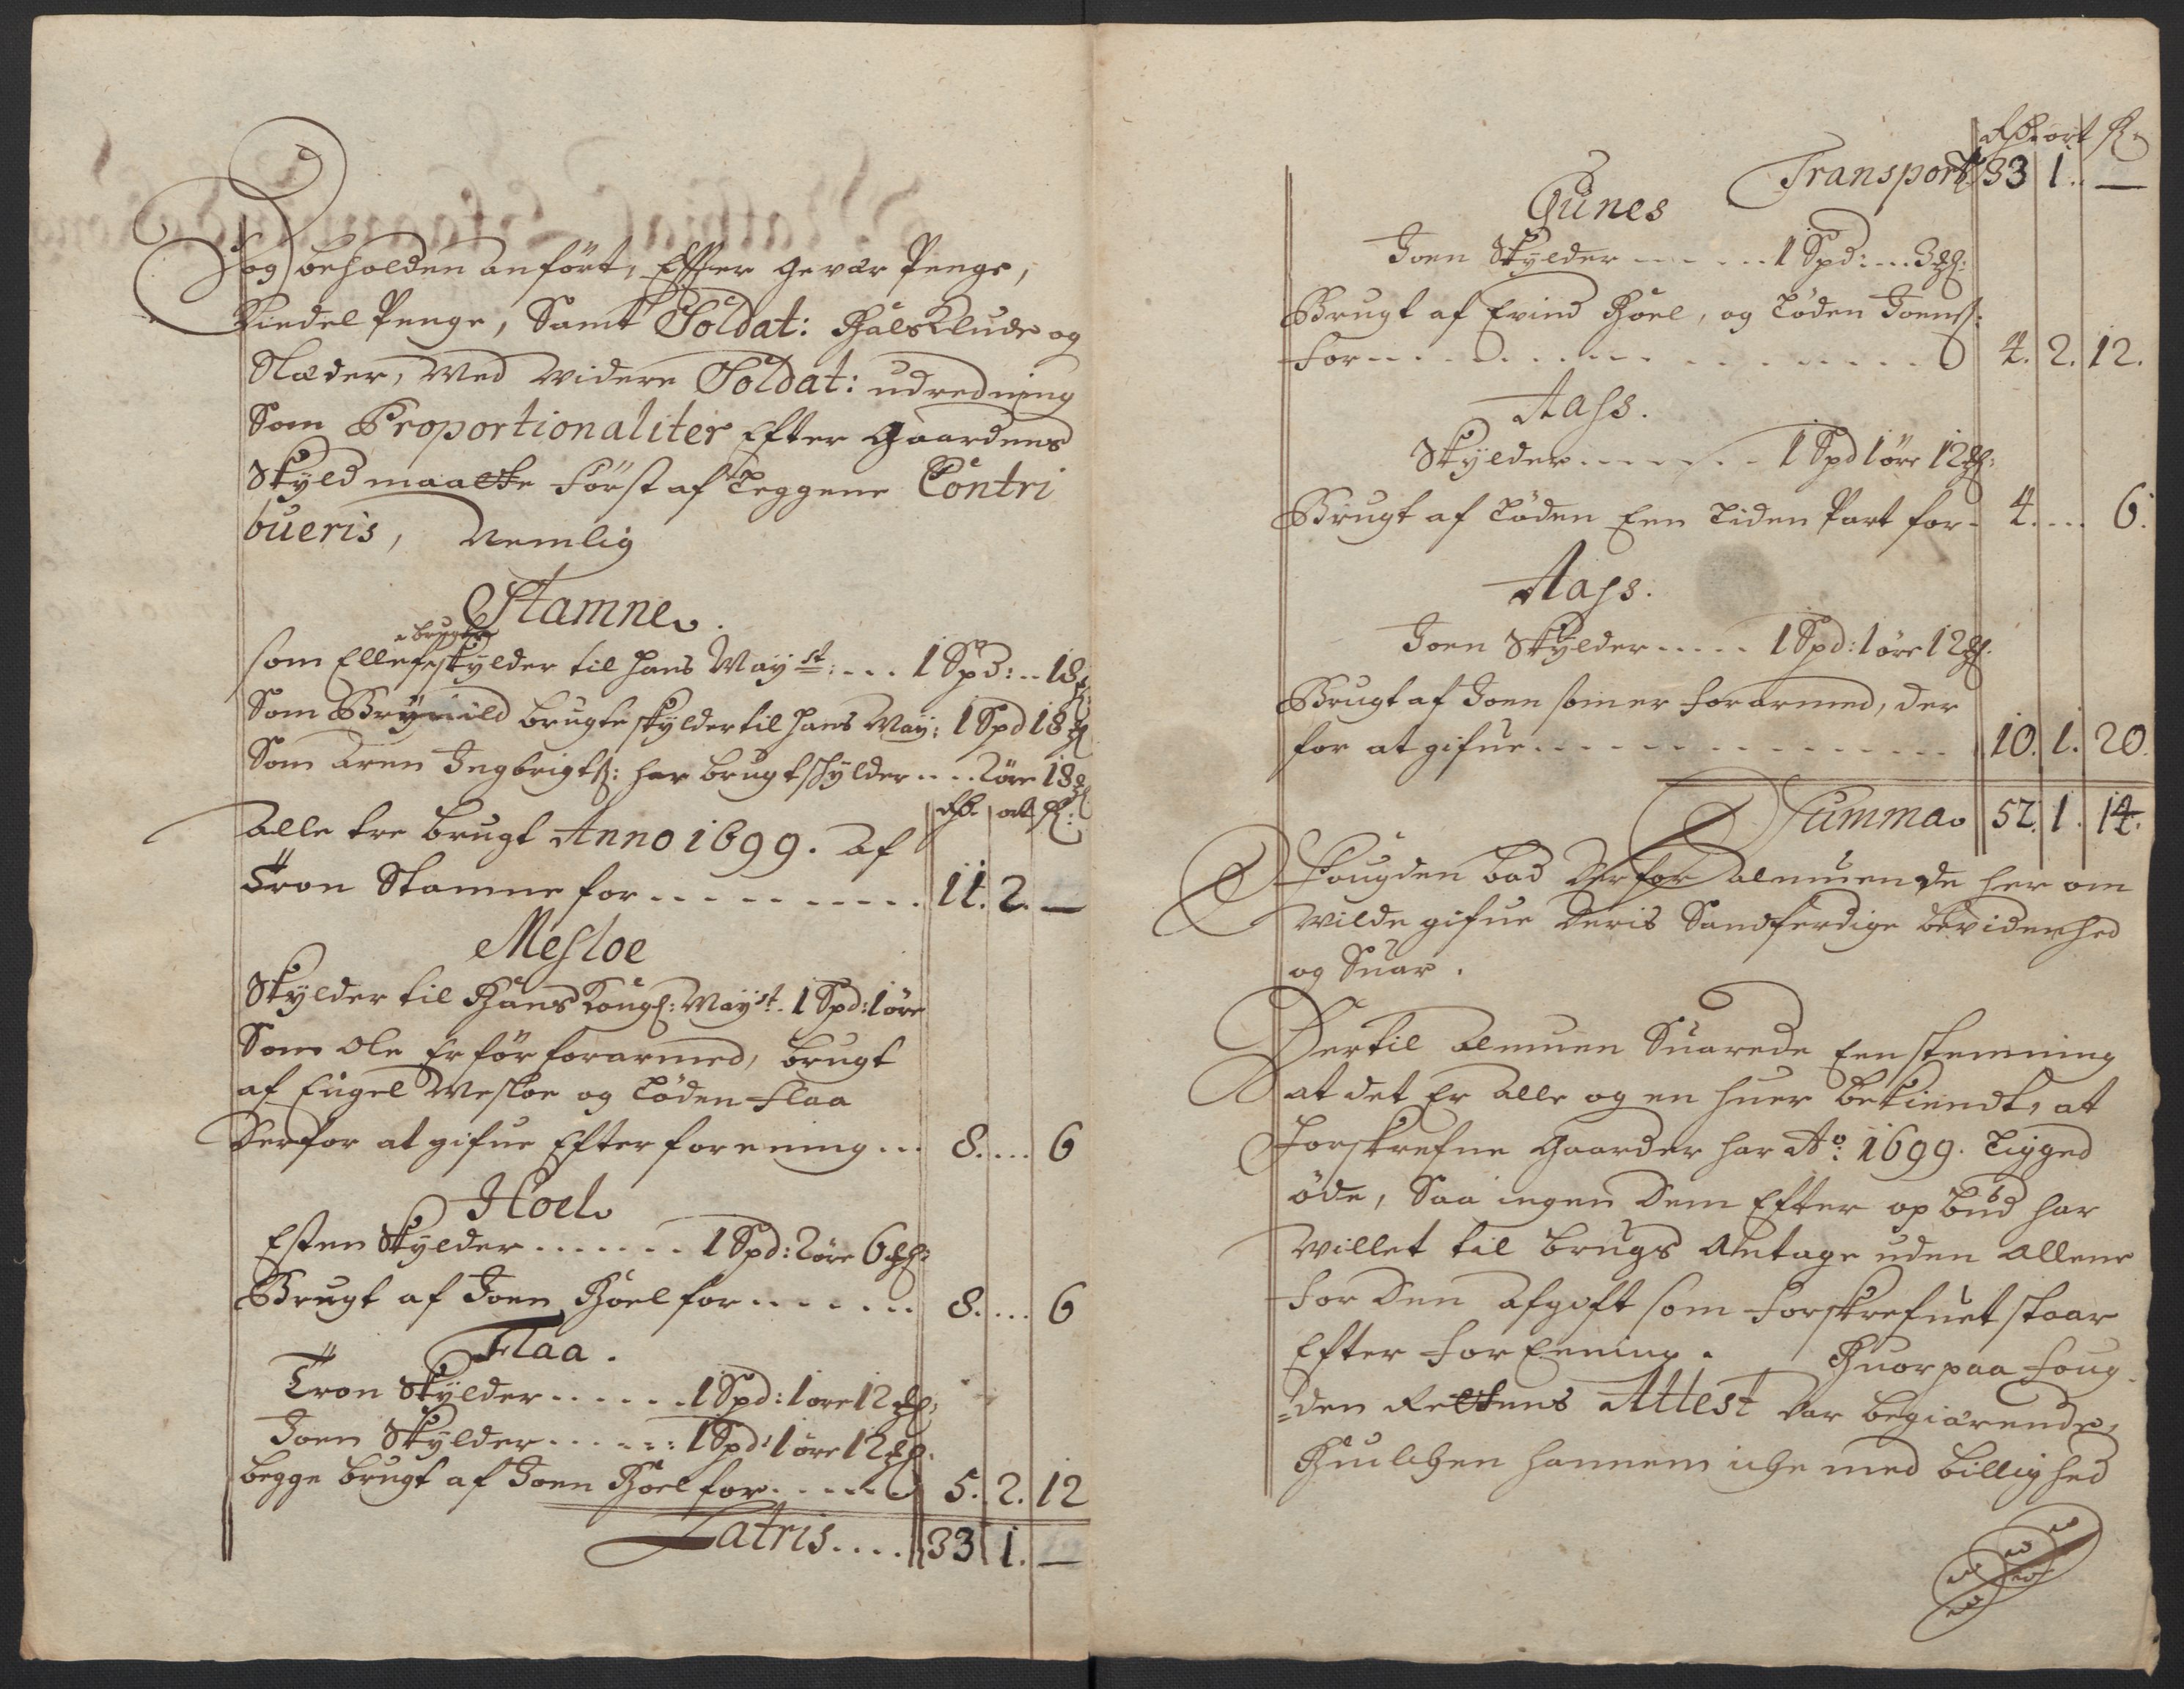 og beholden anført, Efter Gevær Penge,
Kiedel Penge, Samt Soldat: Halsklude og
Klæder, med videre Soldat: udredning
Som Proportionaliter Efter Gaardens
Skyldmaal Først af Leggene Contri
bueris, Nemlig
Stamne.
brugte
som Ellef skylder til hans May st: ... 1 Spd: .. 18
Som Brynild brugte skylder til hans May: 1 Spd 18
Som Aren Ingbrigts: har brugt skylder .... 2 øre 18
Rdr ort s:
Alle tre brugt Anno 1699. Af
Tron Stamne for .......... 11. 2. —
Mesloe
Skylder til Hans Kongl: May st. 1 Spd: 1 øre
Som Ole Er før forarmed, brugt
af Engel Mesloe og Loden Flaa
Derfor at gifue Efter forening ... 8. ... 6
Hoel
Esten Skylder ....... 1 Spd: 2 øre 6
Brugt af Joen Hoel for ....... 8. ... 6
Flaa.
Tron Skylder ...... 1 Spd: 1 øre 12
Joen Skylder ...... 1 Spd: 1 øre 12
begge brugt af Joen Hoel for ..... 5. 2. 12
Latris .... 33 1. —
Rdr ort s
Transport 33 1 .. —
Gunes
Joen Skylder ...... 1 Spd: ... 3
Brugt af Evind Hoel, og Loden Joens:
For .............. 4. 2. 12.
Aass.
Skylder ...... 1 Spd 1 øre 12
Brugt af Loden Een Liden Part for - 4. ... 6.
Aass.
Joen Skylder ..... 1 Spd: 1 øre 12
Brugt af Joen som er forarmed, der
for at gifue .............. 10. 1. 20.
Summa 52. 1. 14.
Fougden bad Derfor Almuen de her om
Wilde gifue Deris Sandferdige bevidenhed
og Suar.
Dertil Almuen Suarede Eenstemning
at det Er Alle og en huer bekiendt, at
Forskrefne Gaarder har Ao: 1699. Ligged
øde, Saa ingen Dem Efter opbud har
Willet til brugs Antage uden Allene
for Den Afgift som Forskrefuet staar
Efter ForEening. Huorpaa Foug
=den Rettens Attest var begiærende,
Huilchen hannem iche med billighed